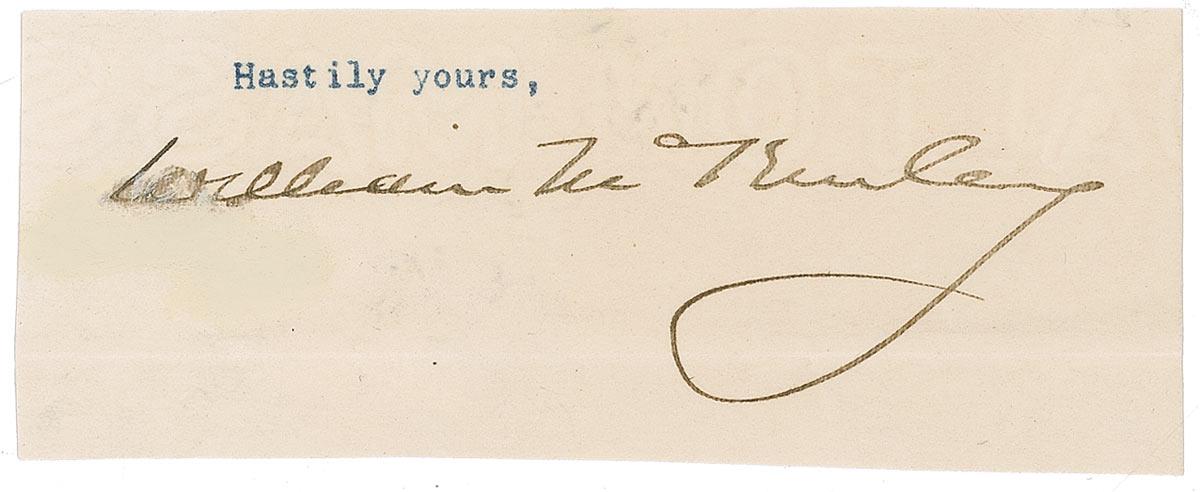 Hastily yours,
William McKinley